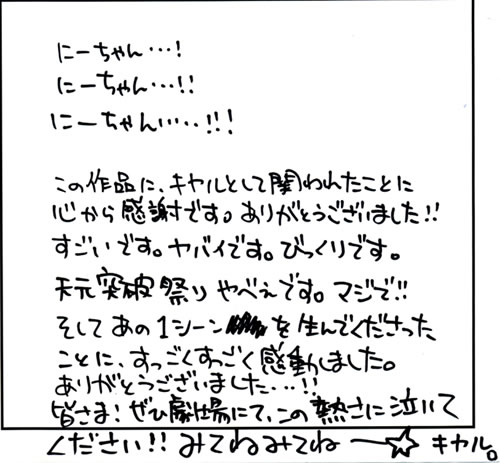 にーちゃん…!
にーちゃん…!!
にーちゃん……!!!
この作品に、キヤルとして関われたことに
心から感謝です。ありがとうございました!!
すごいです。ヤバイです。びっくりです。
天元突破祭り やべぇです。マジで!!
そしてあの1シーン を生んでくださった
ことに、すっごくすっごく感動しました。
ありがとうございました…!!
皆さま!ぜひ劇場にて、この熱さに泣いて
ください!!みてねみてねー☆ キヤル。